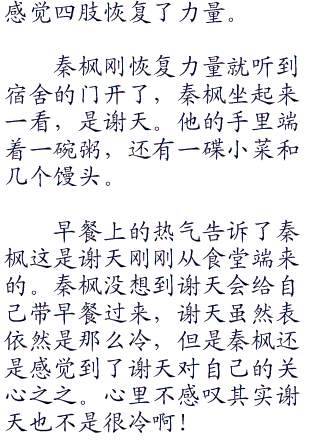 感觉四肢恢复了力量。
秦枫刚恢复力量就听到
宿舍的门开了，秦枫坐起来
一看，是谢天。他的手里端
着一碗粥，还有一碟小菜和
几个馒头。
早餐上的热气告诉了秦
枫这是谢天刚刚从食堂端来
的。秦枫没想到谢天会给自
己带早餐过来，谢天虽然表
依然是那么冷，但是秦枫还
是感觉到了谢天对自己的关
心之之。心里不感叹其实谢
天也不是很冷啊！